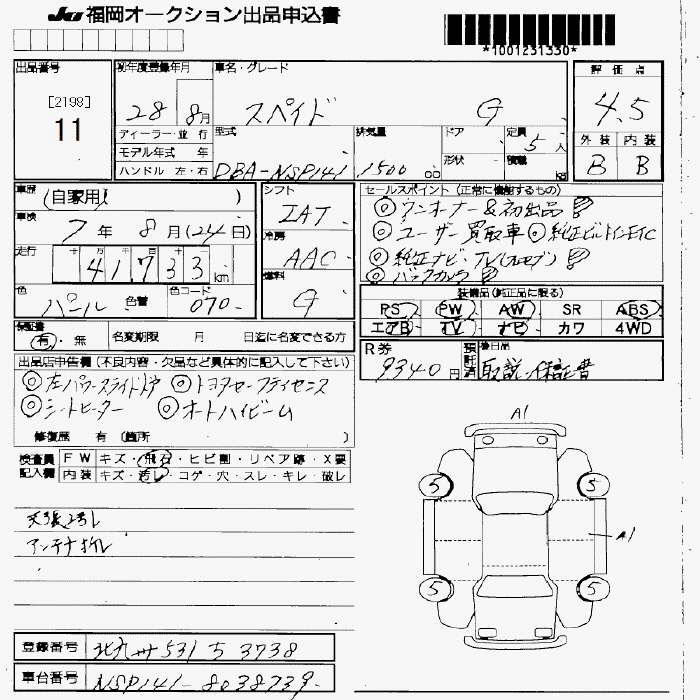 JU 福岡オークション出品申込書
*1001231330*
出品番号
[2198]
11
初年度登録年月
28 8月
車名・グレード
スペイド G
評価点
4.5
外装 内装
B B
ディーラー・並行
モデル年式 年
ハンドル 左・右
型式
DBA-NSP141
排気量
1500 cc
ドア
形状
定員
5人
積載
kg
車歴
(自家用)
車検
7年 8月(24日)
走行
十万千百十
41733 km
色
パール
色替
色コード
070
シフト
IAT
冷房
AAC
燃料
G
セールスポイント (正常に機能するもの)
◎ワンオーナー&初出品
◎ユーザー買取車 ◎純正ビルトインETC
◎純正ナビ・TV(フルセグ)
◎バックカメラ
装備品(純正品に限る)
PS PW AW SR ABS
エアB TV ナビ カワ 4WD
保証書
有・無
名変期限 月 日迄に名変できる方
R券
9340円
預託済
後日品
取説・保証書
出品店申告欄 (不良内容・欠品など具体的に記入して下さい)
◎左パワースライドドア ◎トヨタセーフティセンス
◎シートヒーター ◎オートハイビーム
修復歴 有 (箇所 )
検査員記入欄
FW キズ・飛石・ヒビ割・リペア跡・X要
内装 キズ・汚レ・コゲ・穴・スレ・キレ・破レ
天張汚レ
アンテナ折レ
A1
5 5
A1
5 5
登録番号
北九州 531 ち 3738
車台番号
NSP141-8038739